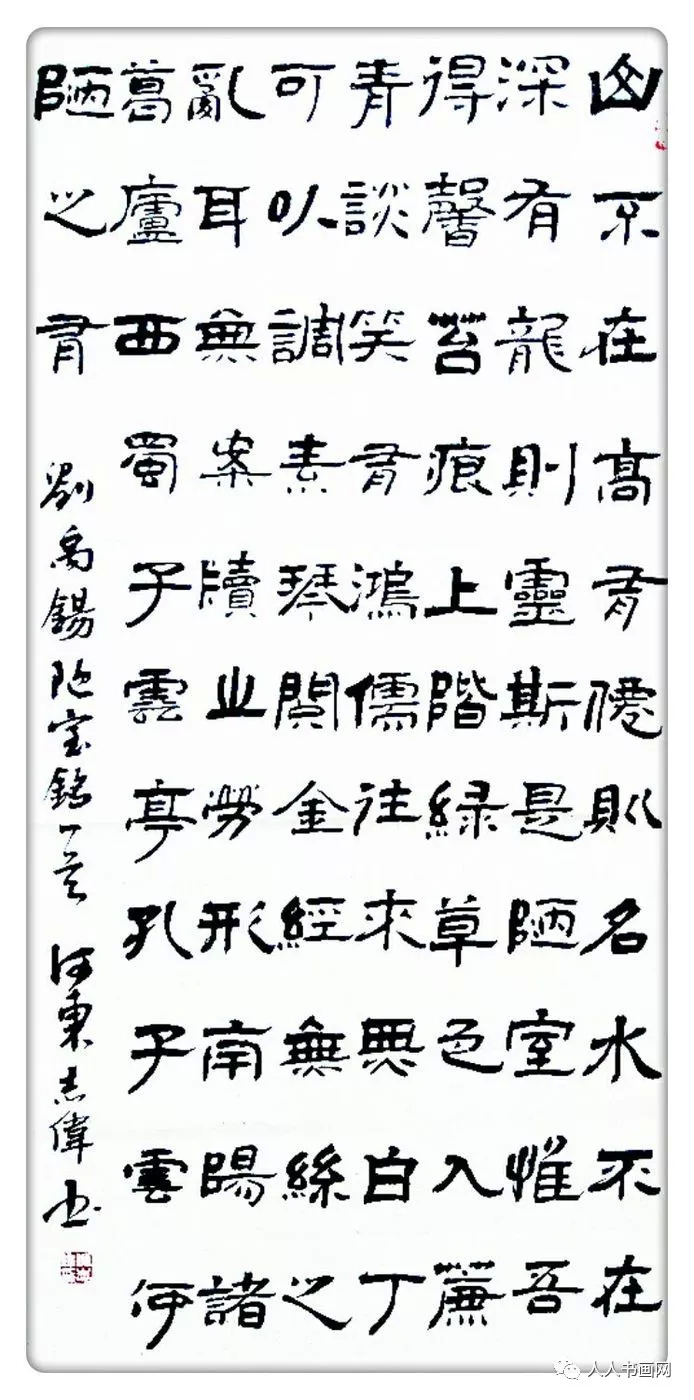 山不在高有僊則名水不在
深有龍則靈斯是陋室惟吾
得馨苔痕上階緑草色入簾
青談笑有鴻儒往來無白丁
可以調素琴閱金經無絲之
亂耳無案牘之勞形南陽諸
葛廬西蜀子雲亭孔子雲何
陋之有
劉禹錫陋室銘一首 河東志偉书
人人书画网